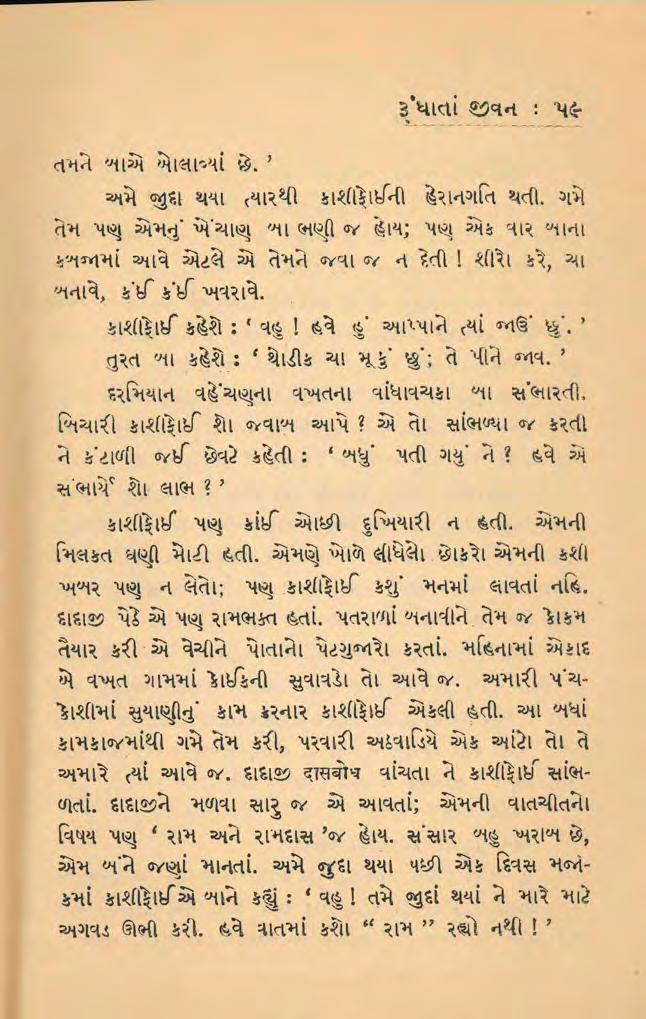 રૂંધાતાં જીવન : ૫૯
તમને બાએ બોલાવ્યાં છે. ’
અમે જુદા થયા ત્યારથી કાશીફોઈની હેરાનગતિ થતી. ગમે
તેમ પણ એમનું ખેંચાણ બા ભણી જ હોય; પણ એક વાર બાના
કબજામાં આવે એટલે એ તેમને જવા જ ન દેતી ! શીરો કરે, ચા
બનાવે, કંઈ કંઈ ખવરાવે.
કાશીફોઈ કહેશે : ‘ વહુ ! હવે હું આપ્પાને ત્યાં જાઉં છું. ’
તુરત બા કહેશે : ‘ થોડીક ચા મૂકું છું; તે પીને જાવ. ’
દરમિયાન વહેંચણના વખતના વાંધાવચકા બા સંભારતી.
બિચારી કાશીફોઈ શો જવાબ આપે ? એ તો સાંભળ્યા જ કરતી
ને કંટાળી જઈ છેવટે કહેતી : ‘ બધું પતી ગયું ને ? હવે એ
સંભાર્યે શો લાભ ? ’
કાશીફોઈ પણ કાંઈ ઓછી દુખિયારી ન હતી. એમની
મિલકત ઘણી મોટી હતી. એમણે ખોળે લીધેલો છોકરો એમની કશી
ખબર પણ ન લેતો; પણ કાશીફોઈ કશું મનમાં લાવતાં નહિ.
દાદાજી પેઠે એ પણ રામભક્ત હતાં. પતરાળાં બનાવીને તેમ જ કોકમ
તૈયાર કરી એ વેચીને પોતાનો પેટગુજારો કરતાં. મહિનામાં એકાદ
બે વખત ગામમાં કોઈકની સુવાવડો તો આવે જ. અમારી પંચ-
કોશીમાં સુયાણીનું કામ કરનાર કાશીફોઈ એકલી હતી. આ બધાં
કામકાજમાંથી ગમે તેમ કરી, પરવારી અઠવાડિયે એક આંટો તો તે
અમારે ત્યાં આવે જ. દાદાજી दासबोध વાંચતા ને કાશીફોઈ સાંભ-
ળતાં. દાદાજીને મળવા સારુ જ એ આવતાં; એમની વાતચીતનો
વિષય પણ ‘ રામ અને રામદાસ ’જ હોય. સંસાર બહુ ખરાબ છે,
એમ બંને જણાં માનતાં. અમે જુદા થયા પછી એક દિવસ મજા-
કમાં કાશીફોઈએ બાને કહ્યું : ‘ વહુ ! તમે જુદાં થયાં ને મારે માટે
અગવડ ઊભી કરી. હવે વાતમાં કશો “ રામ ” રહ્યો નથી ! ’